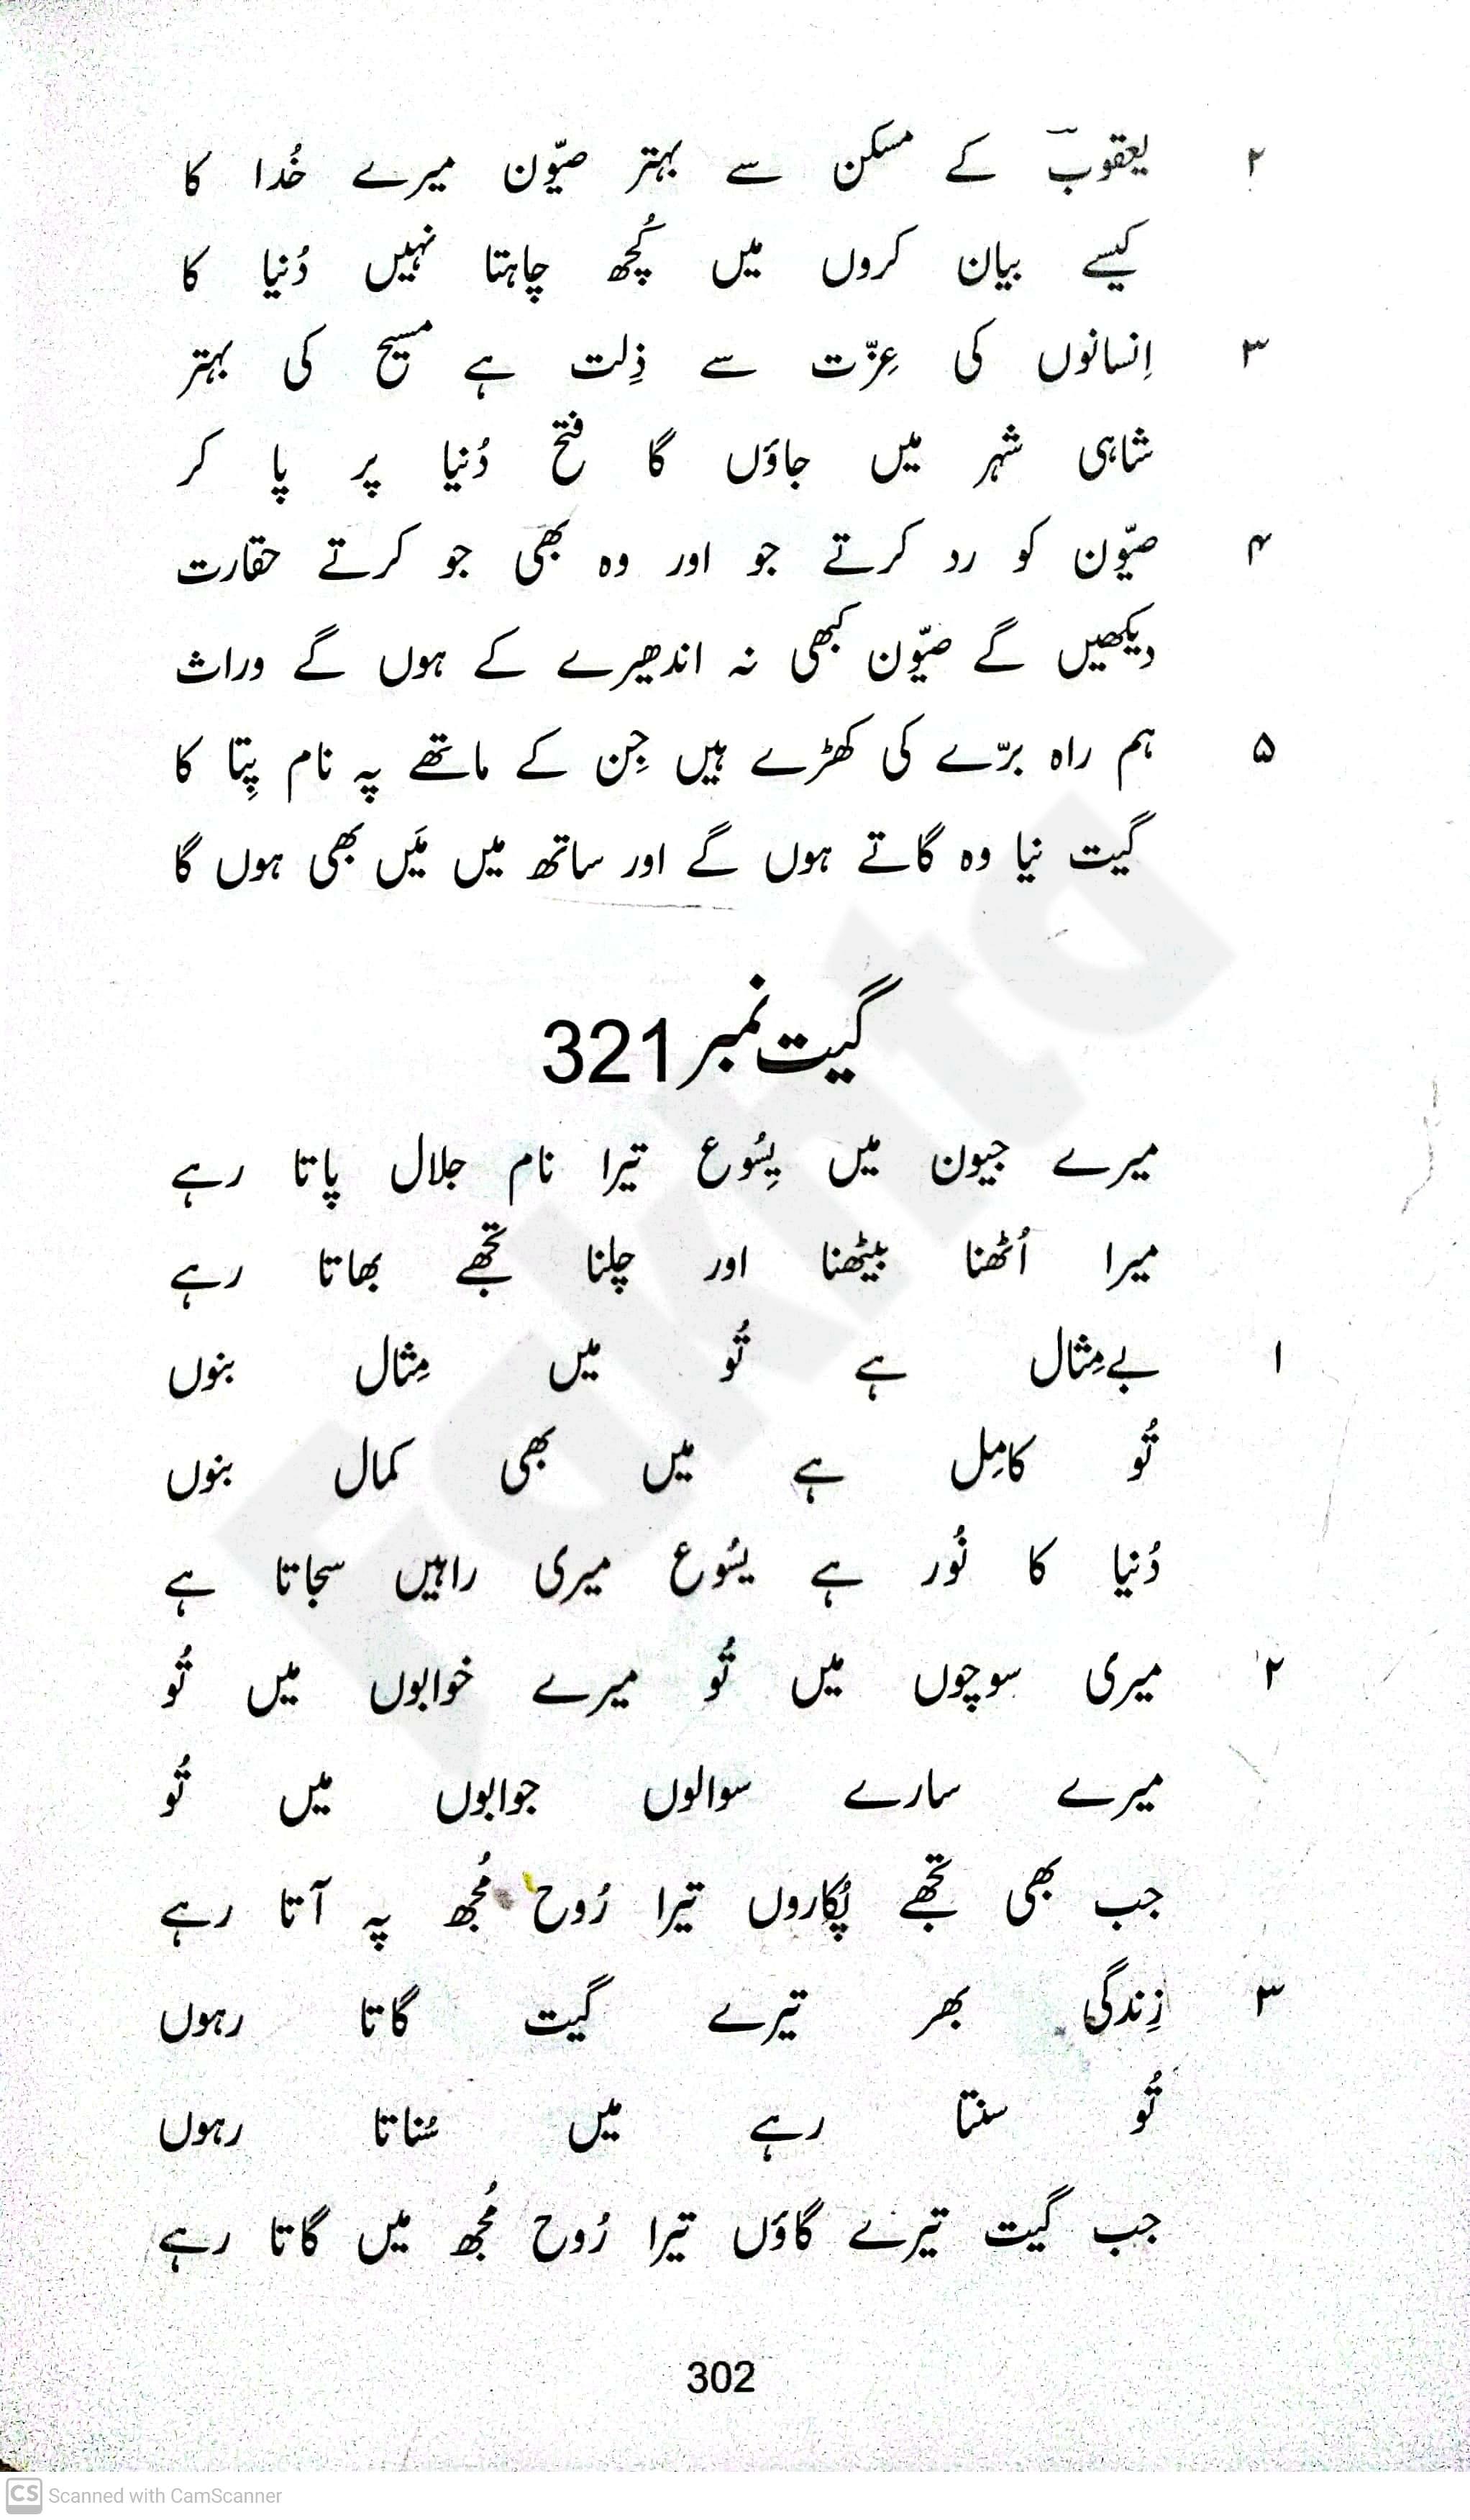 ۲ یعقوبؔ کے مسکن سے بہتر صیّون میرے خُدا کا
کیسے بیان کروں میں کُچھ چاہتا نہیں دُنیا کا
۳ اِنسانوں کی عِزّت سے ذِلت ہے مسیح کی بہتر
شاہی شہر میں جاؤں گا فتح دُنیا پر پا کر
۴ صیّون کو رد کرتے جو اور وہ بھی جو کرتے حقارت
دیکھیں گے صیّون کبھی نہ اندھیرے کے ہوں گے وراث
۵ ہم راہ برّے کی کھڑے ہیں جِن کے ماتھے پہ نام پِتا کا
گیت نیا وہ گاتے ہوں گے اور ساتھ میں مَیں بھی ہوں گا
گیت نمبر 321
میرے جیون میں یِسُوع تیرا نام جلال پاتا رہے
میرا اُٹھنا بیٹھنا اور چلنا تُجھے بھاتا رہے
۱ بےمِثال ہے تُو میں مِثال بنوں
تُو کامِل ہے میں بھی کمال بنوں
دُنیا کا نُور ہے یسُوع میری راہیں سجاتا ہے
۲ میری سوچوں میں تُو میرے خوابوں میں تُو
میرے سارے سوالوں جوابوں میں تُو
جب بھی تُجھے پُکاروں تیرا رُوح مُجھ پہ آتا رہے
۳ زِندگی بھر تیرے گیت گاتا رہوں
تُو سنتا رہے میں سُناتا رہوں
جب گیت تیرے گاؤں تیرا رُوح مُجھ میں گاتا رہے
302
Fakhta
CS Scanned with CamScanner